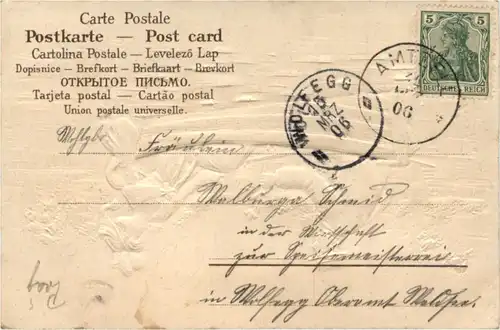 Carte Postale
Postkarte — Post card
Cartolina Postale – Levelező Lap
Dopisnice – Brefkort – Briefkaart – Brevkort
ОТКРЫТОЕ ПИСЬМО.
Tarjeta postal — Cartão postal
Union postale universelle.
5 5
DEUTSCHES REICH
WOLFEGG
MRZ
06
06
Fräulein
Walburga Schmid
in der Wirtschaft
zur Speisemeisterei
in Wolfegg Oberamt Waldsee